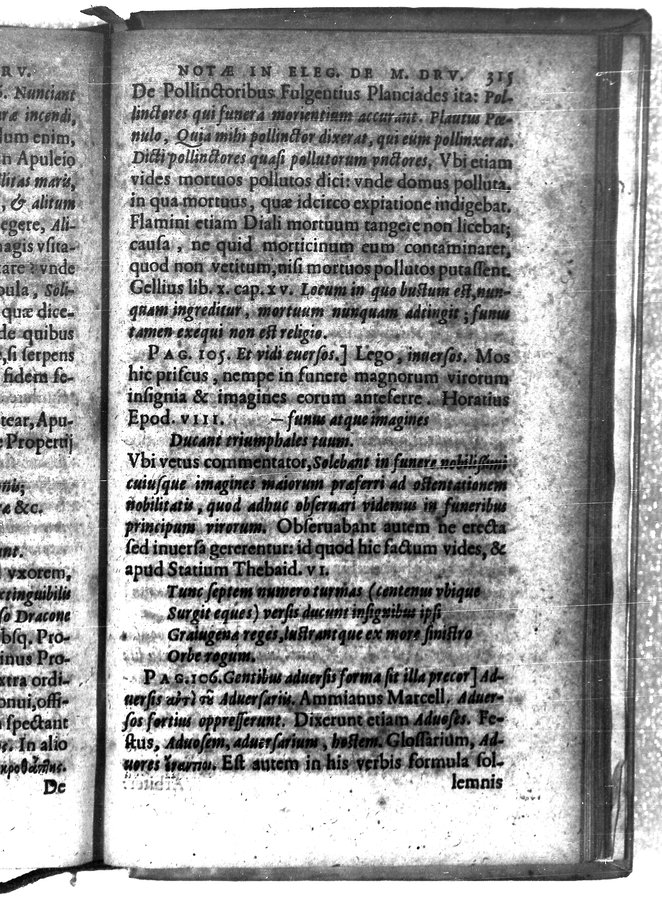 RV.
Nunciant
incendi,
lum enim,
n Apuleio
litas maris,
, & alitum
egere, Ali-
magis vsita-
tare ? vnde
bula, Soli-
quæ dice-
de quibus
,si serpens
fidem fe-
tear, Apu-
e Propertij
&c.
vxorem,
ctinguibilis
so Dracone
bsq. Pro-
inus Pro-
xtra ordi-
onui, offi-
spectant
In alio
De
NOTÆ IN ELEG. DE M. DRV. 315
De Pollinctoribus Fulgentius Planciades ita: Pol-
linctores qui funera morientium accurant. Plautus Pœ-
nulo, Quia mihi pollinctor dixerat, qui eum pollinxerat.
Dicti pollinctores quasi pollutorum vnctores. Vbi etiam
vides mortuos pollutos dici: vnde domus polluta,
in qua mortuus, quæ idcirco expiatione indigebat.
Flamini etiam Diali mortuum tangere non licebat;
causa, ne quid morticinum eum contaminaret,
quod non vetitum, nisi mortuos pollutos putassent.
Gellius lib. x. cap. xv. Locum in quo bustum est, nun-
quam ingreditur, mortuum nunquam adtingit; funus
tamen exequi non est religio.
PAG. 105. Et vidi euersos.] Lego, inuersos. Mos
hic priscus, nempe in funere magnorum virorum
insignia & imagines eorum anteferre. Horatius
Epod. VIII. — funus atque imagines
Ducant triumphales tuum.
Vbi vetus commentator, Solebant in funere nobilissimi
cuiusque imagines maiorum præferri ad ostentationem
nobilitatis, quod adhuc obseruari videmus in funeribus
principum virorum. Obseruabant autem ne erecta
sed inuersa gererentur: id quod hic factum vides, &
apud Statium Thebaid. VI.
Tunc septem numero turmas (centenus vbique
Surgit eques) versis ducunt insignibus ipsi
Graiugenæ reges, lustrantque ex more sinistro
Orbe rogum.
PAG. 106. Gentibus aduersis forma sit illa precor] Ad-
uersis ἀντὶ τοῦ Aduersariis. Ammianus Marcell. Aduer-
sos fortius oppresserunt. Dixerunt etiam Aduoses. Fe-
stus, Aduosem, aduersarium, hostem. Glossarium, Ad-
uores ἐναντίοι. Est autem in his verbis formula sol-
lemnis